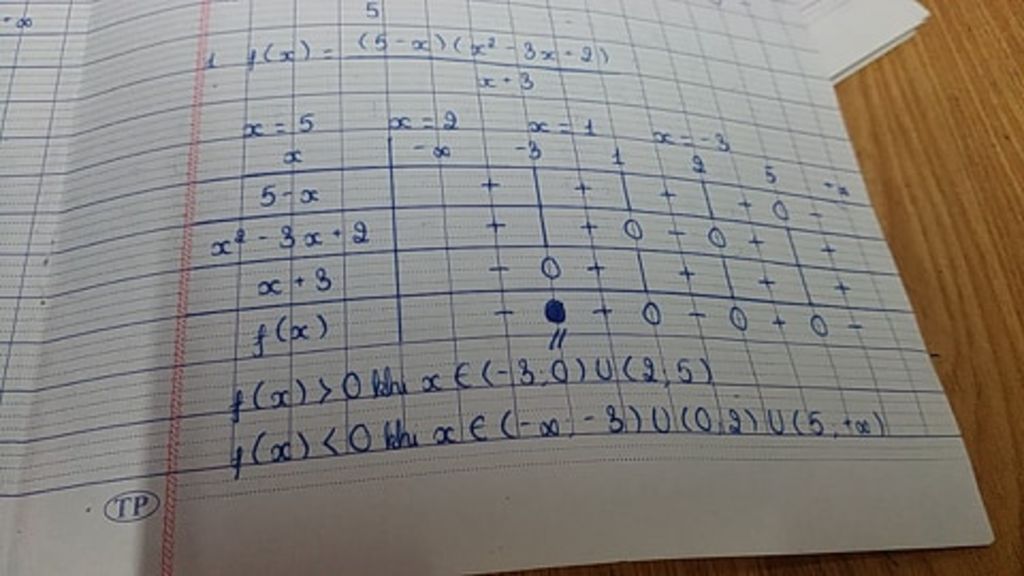 -∞
5
1 f(x) = (5 - x)(x² - 3x + 2)
x + 3
x = 5 x = 2 x = 1 x = -3
x -∞ -3 1 2 5 +∞
5 - x + + + + 0 -
x² - 3x + 2 + + 0 - 0 + +
x + 3 - 0 + + + +
f(x) - + 0 - 0 + 0 -
f(x) > 0 khi x ∈ (-3; 0) ∪ (2; 5)
f(x) < 0 khi x ∈ (-∞; -3) ∪ (0; 2) ∪ (5; +∞)
TP